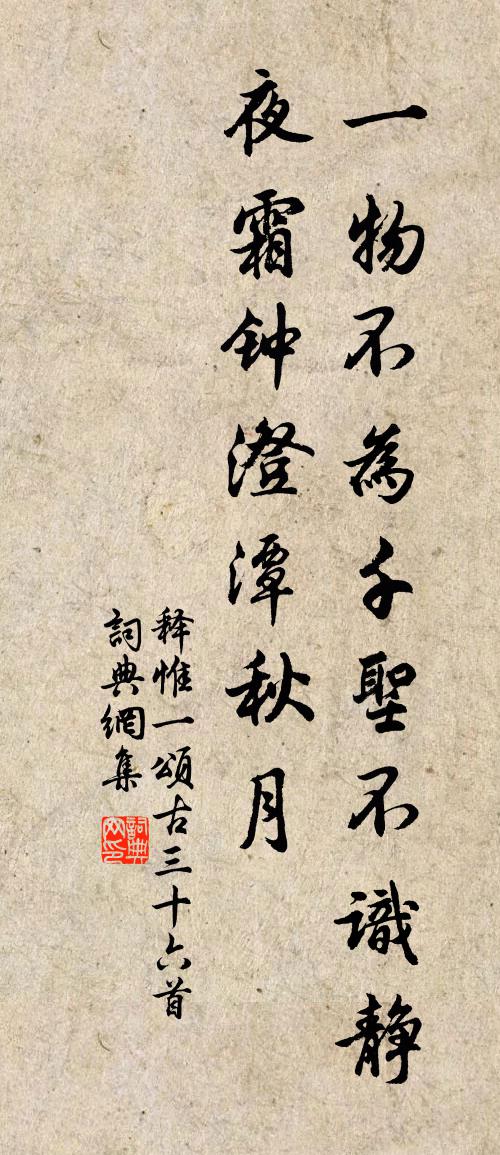 一物不為千聖不識靜
夜霜钟澄潭秋月
释惟一頌古三十六首
詞典網集
詞典网印